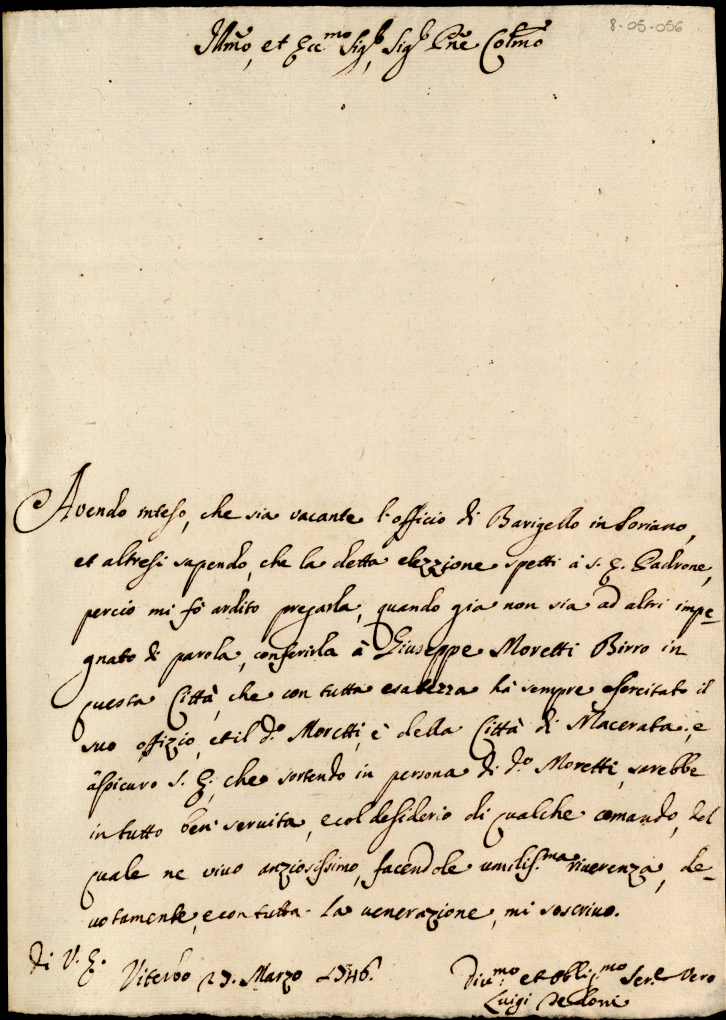 8-05-056
Illmo, et Eccmo Sigr, Sigr Pne Colmo
Avendo inteso, che sia vacante l'officio di Barigello in Soriano,
et altresi sapendo, che la detta elezzione spetti à S. E. Padrone,
perciò mi fò ardito pregarla, quando gia non sia ad altri impe-
gnato di parola, conferirla à Giuseppe Moretti Birro in
questa Città, che con tutta esatezza hà sempre esercitato il
suo offizio, et il do Moretti, è della Città di Macerata, e
assicuro S. E., che sortendo in persona di do Moretti, sarebbe
in tutto ben servita, e col desiderio di qualche comando, del
quale ne vivo anziosissimo, facendole umilissma riverenza, de-
votamente, e con tutta la venerazione, mi soscrivo.
di V. E.
Viterbo 23. Marzo 1746.
Divmo et Obbligmo Serre Vero
Luigi